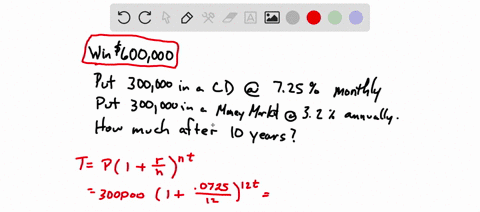 Win $600,000
Put 300,000 in a CD @ 7.25% monthly
Put 300,000 in a Money Market @ 3.2% annually.
How much after 10 years?
T = P(1 + r/n)^nt
= 300000 (1 + .0725/12)^12t =